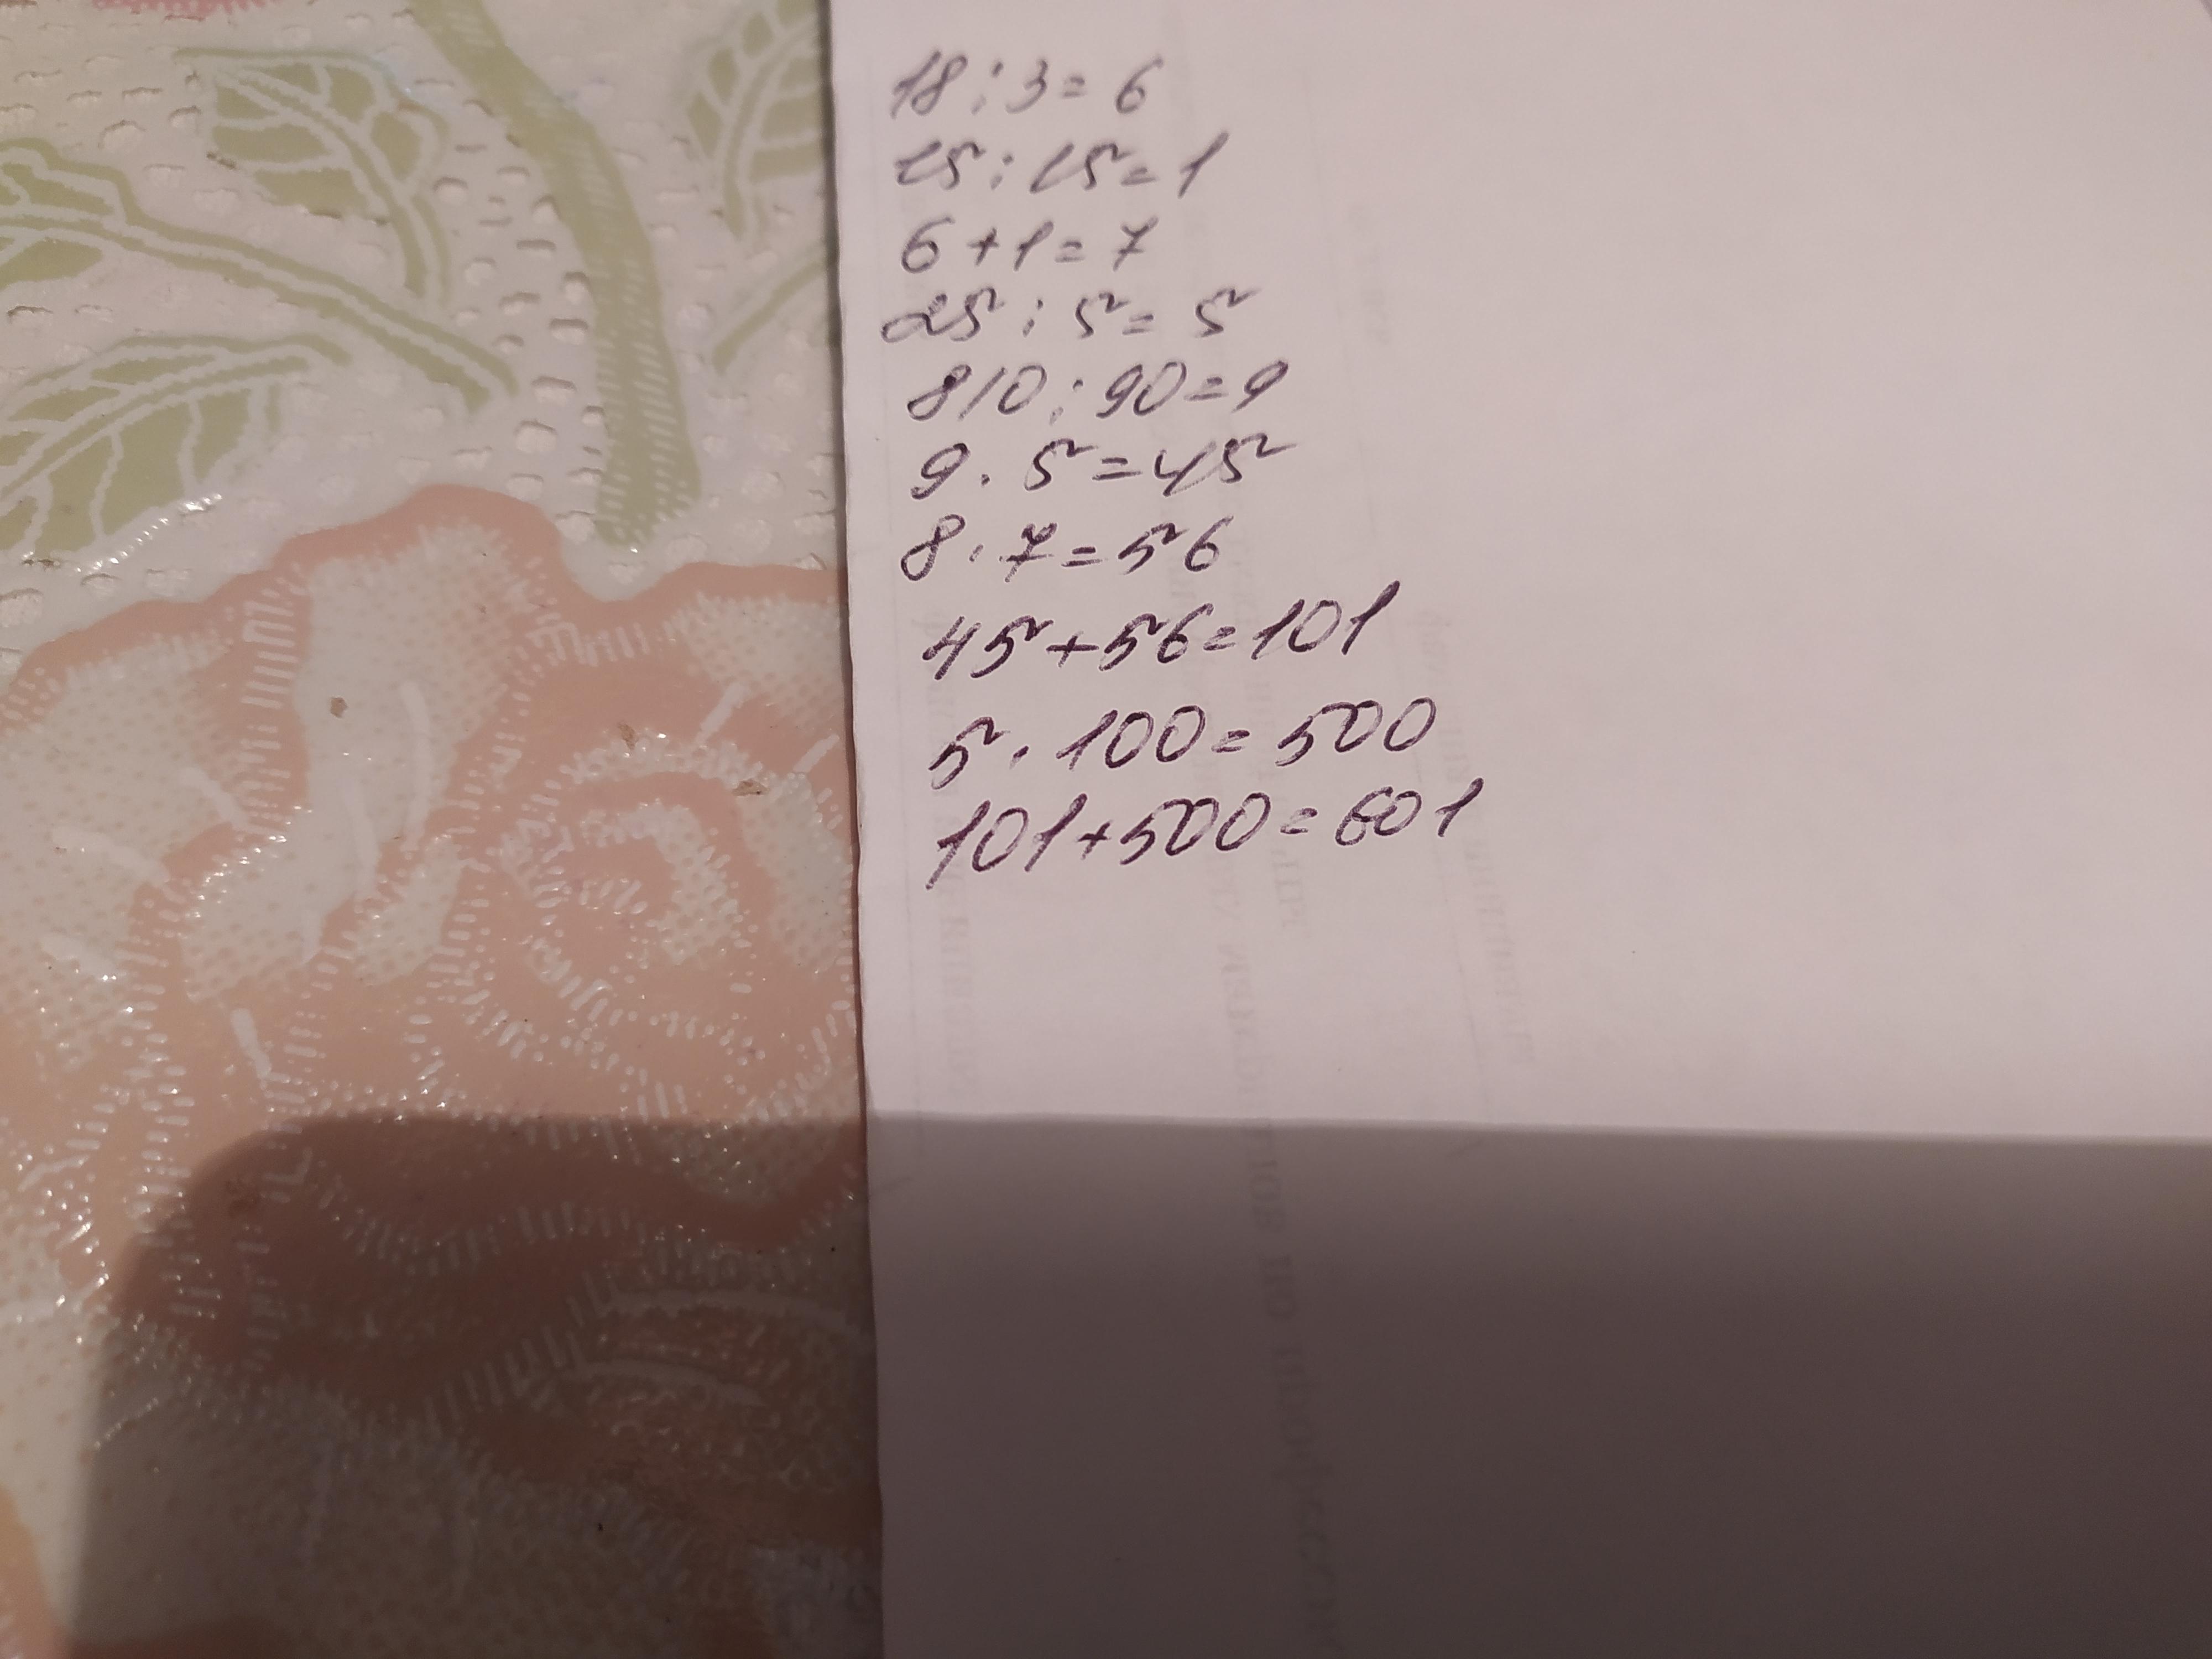 18:3=6
15:15=1
6+1=7
25:5=5
810:90=9
9·5=45
8·7=56
45+56=101
5·100=500
101+500=601